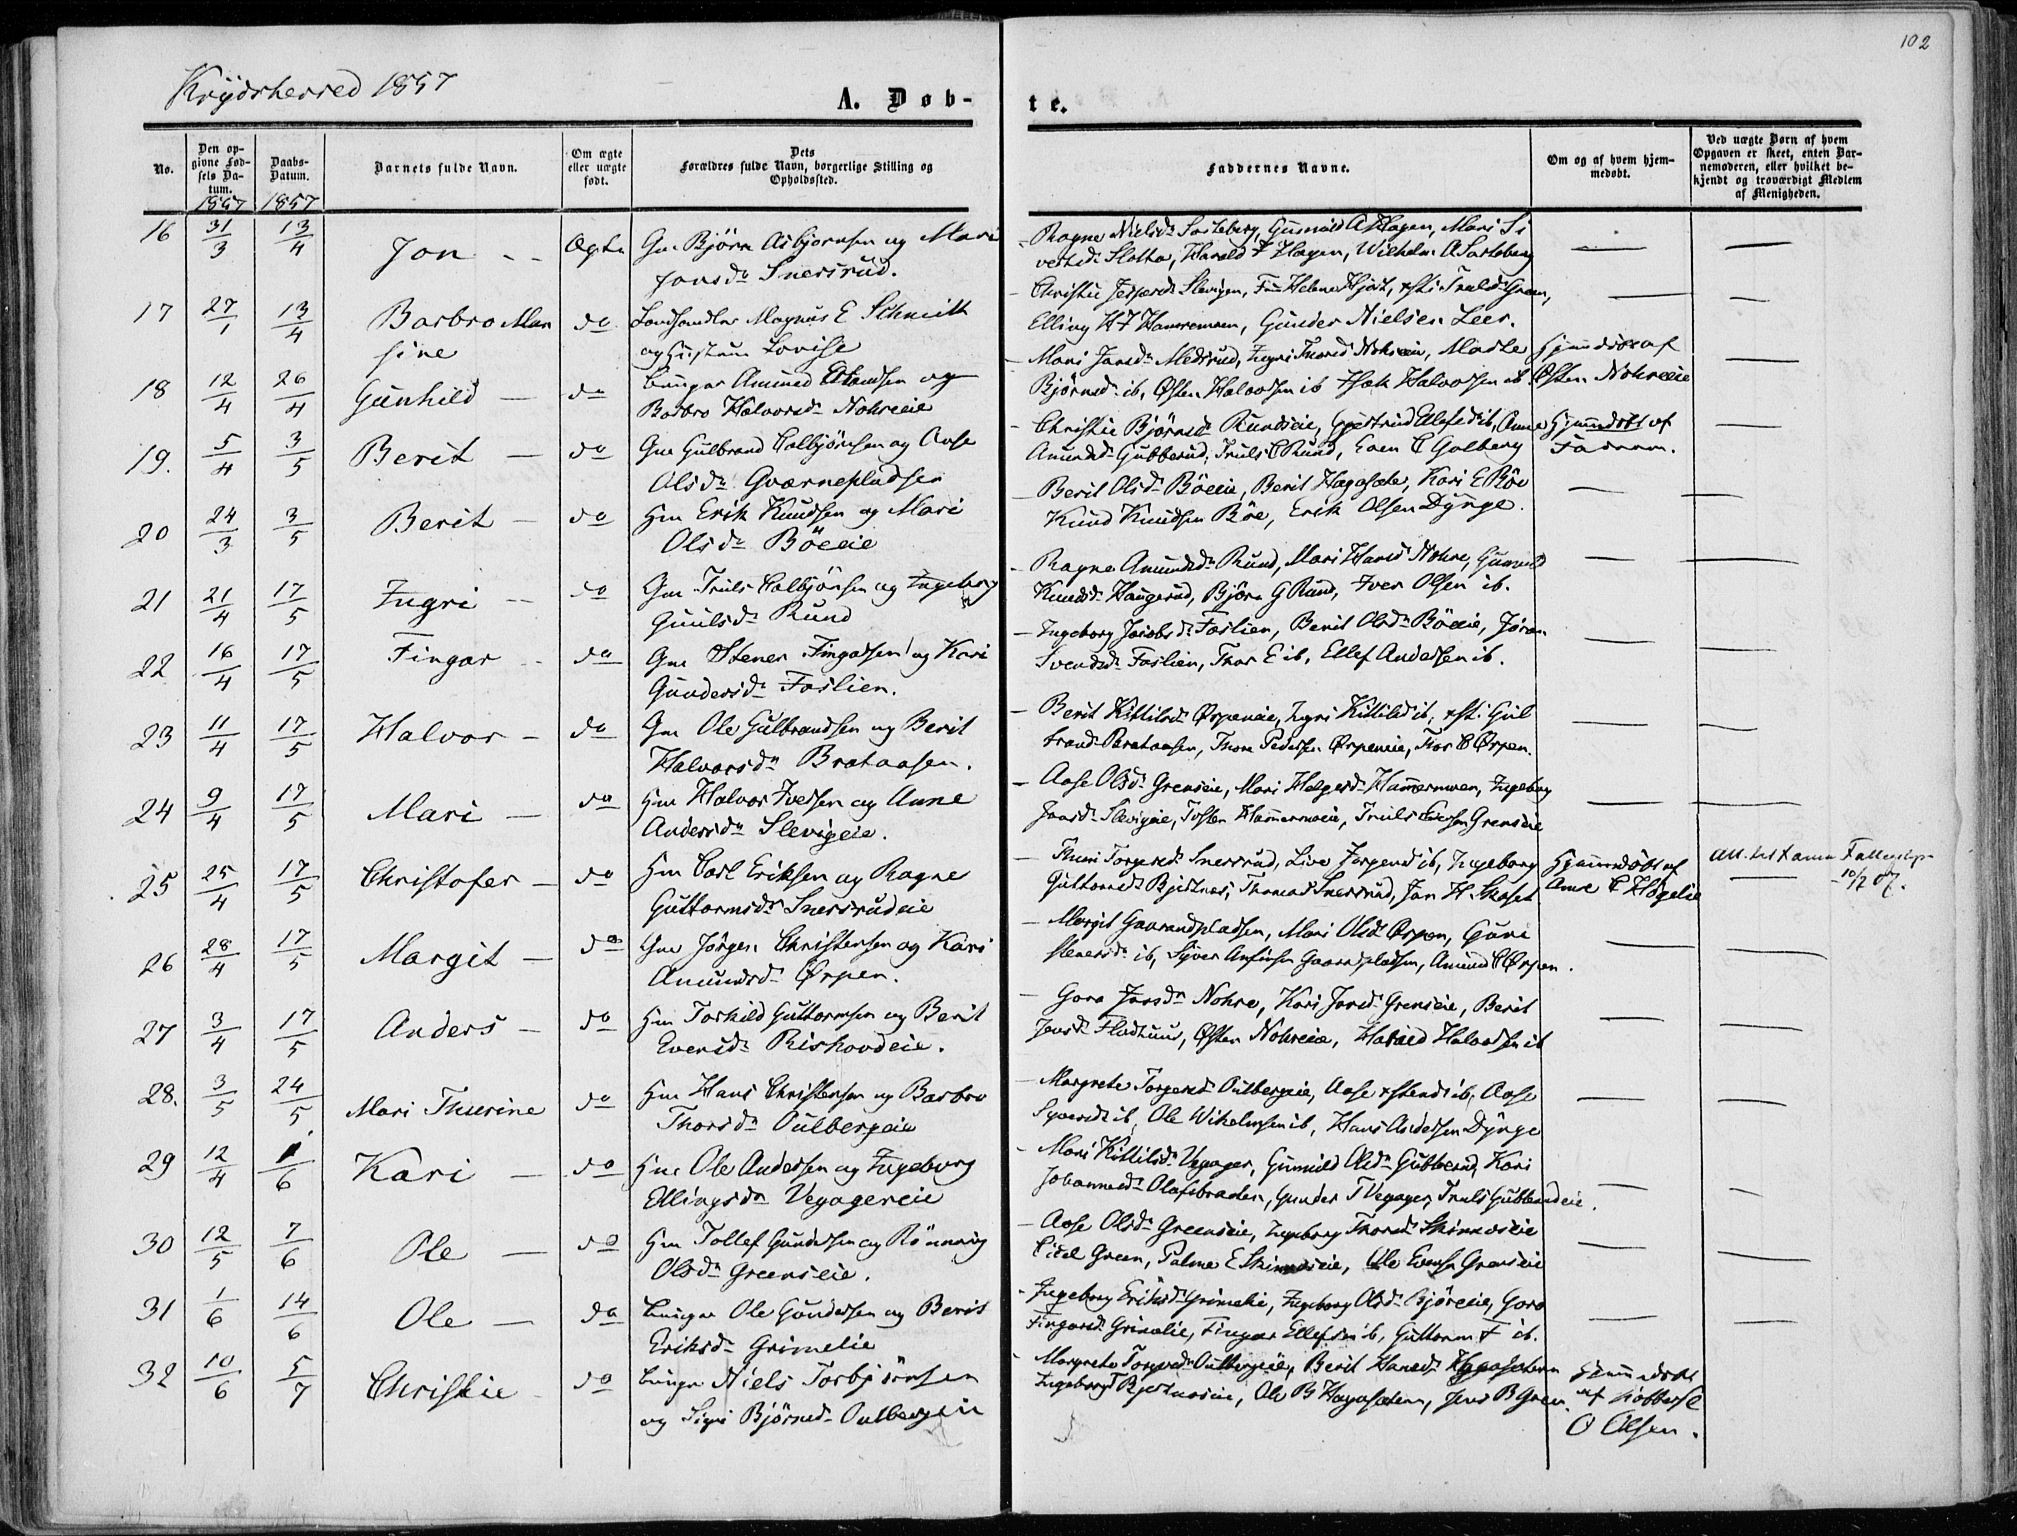 102
Krydsherred 1857
A. Døb-
te.
No.
Den op-
givne Fød-
sels Da-
tum.
1857
Daabs-
Datum.
1857
Barnets fulde Navn.
Om ægte
eller uægte
født.
Dets
Forældres fulde Navn, borgerlige Stilling og
Opholdssted.
Faddernes Navne.
Om og af hvem hjem-
medøbt.
Ved uægte Børn af hvem
Opgaven er skeet, enten Bar-
nemoderen, eller hvilket be-
kjendt og troværdigt Medlem
af Menigheden.
16 31/3 13/4 Jon Ægte Gm Bjørn Asbjørnsen og Mari
Jonsdr Snersrud.
Ragne Nielsdr Sarteberg, Gunnild A Hagen, Mari Si
versdr Slotta, Harald T Hagen, Wilhelm A Sarteberg
17 27/1 13/4 Barbro Man
sine do Landhandler Magnus E Schmidt
og Hustrue Lovise
Christie Jespersdr Slevigen, Helene Hjort, Green,
Elling H Hammermoen, Gunder Nielsen Leer.
18 12/4 26/4 Gunhild — do Amund og
Barbro Halvorsdr Nohreeie
Mari Jansdr Medsrud, Ingri Thorsdr Nohreeie, Marte
Bjørnsdr ib, Østen Halvorsen ib Halvorsen ib
Hjemmedøbt af
Østen Nohreeie
19. 5/4 3/5 Berit — do Gm Gulbrand Colbjørnsen og Aase
Olsdr Gværnepladsen
Christie Bjørnsdr Rundeie, Gjertrud ib, Anne
Amundsdr Gubberud, Truls C Rund, Even C Golberg
Hjemmedøbt af
Faderen.
20 24/3 3/5 Berit — do Hm Erik Knudsen og Mari
Olsdr Böeeie
Berit Olsdr Böeeie, Berit Hagasæte, Kari E Böe
Knud Knudsen Böe, Erik Olsen Dynge.
21 21/4 17/5 Ingri — do Gm Truls Colbjørnsen og Ingeborg
Guulsdr Rund
Ragne Amundsdr Rund, Mari Hansdr Nohre, Gunnild
Knudsdr Haugerud, Bjørn G Rund, Iver Olsen ib.
22 16/4 17/5 Fingar do Gm Stener Fingarsen og Kari
Gundersdr Foslien.
Ingeborg Jacobsdr Foslien, Berit Olsdr Böeeie, Jöran
Svendsdr Foslien, Thor E ib, Ellef Andersen ib.
23 11/4 17/5 Halvor — do Gm Ole Gulbrandsen og Berit
Halvorsdr Brataasen.
Berit Kittilsdr Ørpeneie, Ingri Kittilsdr ib, Gul
brand Brataasen, Thore Pedersen Ørpeneie, Thor C Ørpen.
24 9/4 17/5 Mari — do Hm Halvor Iversen og Anne
Andersdr Slevigeie.
Aase Olsdr Grenseie, Mari Holgersdr Hammermoen, Ingeborg
Jonsdr Slevigeie, Tosten Hammermoeie, Truls Grenseie
25 25/4 17/5 Christofer — do Hm Carl Eriksen og Ragne
Guttormsdr Snersrudeie
Thuri Torgersdr Snersrud, Live Jørgensdr ib, Ingeborg
Guttormsdr Bjertnæs, Thomas Snersrud, Jan H. Skaset
Hjemmedøbt af
Anne C Høgelie
Att. tel
10/7 07.
26 28/4 17/5 Margit — do Gm Jörgen Christensen og Kari
Amundsdr Ørpen.
Margit Gaarandpladsen, Mari Olsdr Ørpen, Guri
Stenersdr ib, Syver Gaarandpladsen, Amund C Ørpen.
27 3/4 17/5 Anders — do Hm Torkild Guttormsen og Berit
Eversdr Riskovdeie.
Goro Jansdr Nohre, Kari Jonsdr Grenseie, Berit
Jonsdr Flodtuns, Østen Nohreeie, Harald Halvorsen ib
28. 3/5 24/5 Mari Thurine do Hm Hans Christensen og Barbro
Thorsdr Oulbergeie
Margrete Torgersdr Oulbergeie, Aase ib, Aase
Syversdr ib, Ole Wilhelmsen ib, Hans Andersen Dynge
29 12/4 1/6 Kari — do Hm Ole Andersen og Ingeborg
Ellingsdr Vegagereie
Mari Kittilsdr Vegager, Gunnild Olsdr Gubberud, Kari
Johannesdr Olafsbraaten, Gunder T Vegager, Truls Gubberudeie.
30 12/5 7/6 Ole — do Hm Tollef Gundersen og Rönnaug
Olsdr Greenseie.
Aase Olsdr Greenseie, Ingeborg Thorsdr Skinnæseie
Green, Palme E Skinnæseie, Ole Grenseie
31 1/6 14/6 Ole — do Ole Gundersen og Berit
Eriksdr Grimelie
Ingeborg Eriksdr Grimelie, Ingeborg Olsdr Björeeie, Goro
Fingarsdr Grimelie, Fingar Ellefsen ib, Guttorm F ib.
32 10/6 5/7 Christie do Niels Torbjörnsen
og Sigri Bjørnsdr Oulbergeie
Margrete Torgersdr Oulbergeie, Berit Hansdr Hagasæteren
Ingeborg T Bjertnæseie, Ole B Hagasæteren, Jens B Green
Hjemmedøbt
af
O Olsen.